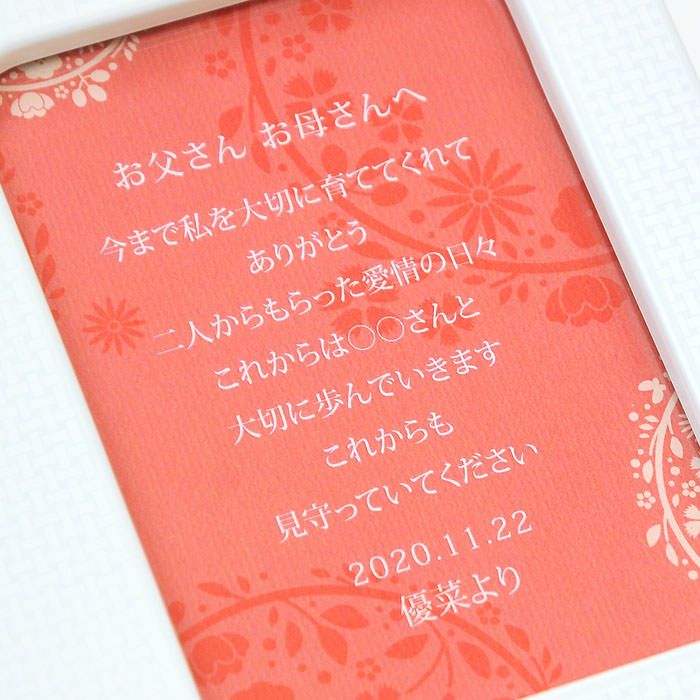 お父さん お母さんへ
今まで私を大切に育ててくれて
ありがとう
二人からもらった愛情の日々
これからは〇〇さんと
大切に歩んでいきます
これからも
見守っていてください
2020.11.22
優菜より